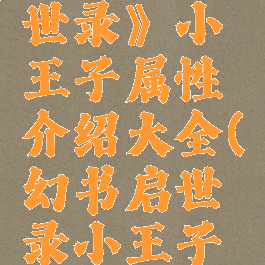 世录》小
王子属性
介绍大全(
幻书启世
录小王子